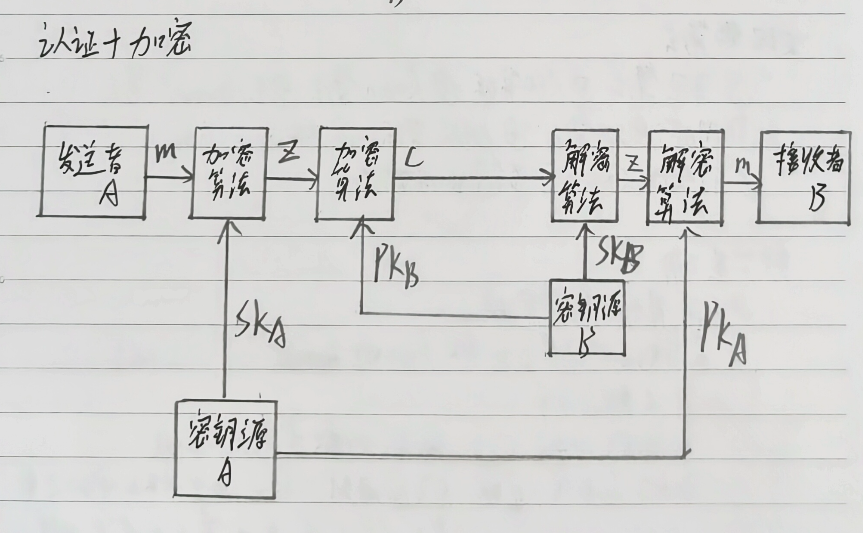 认证+加密
发送者
A
m
加密
算法
Z
加密
算法
C
解密
算法
Z
解密
算法
m
接收者
B
PKB
SKB
SKA
密钥源
B
PKA
密钥源
A